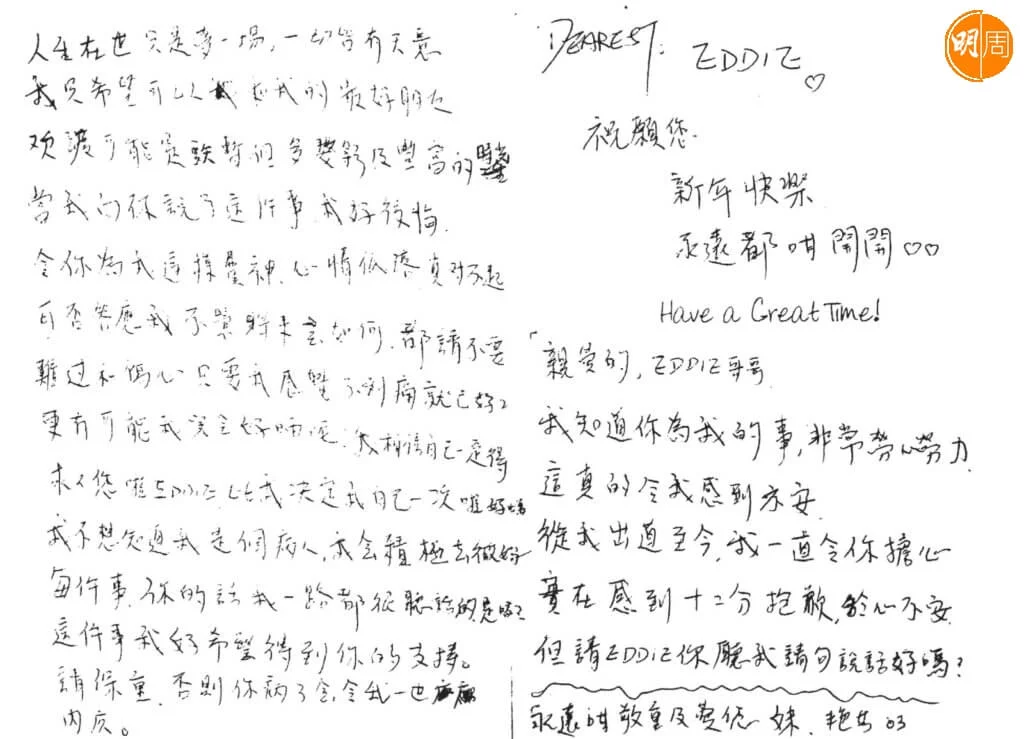 明周
DEAREST: EDDIE ♡
祝願您.
新年快樂
永遠都咁開開♡♡
Have a Great Time!
「親愛的, EDDIE哥哥
我知道你為我的事,非常勞心勞力
這真的令我感到不安
從我出道至今,我一直令你擔心
實在感到十二分抱歉,於心不安
但請EDDIE你聽我講句說話好嗎?
永遠咁敬重及愛您 妹 艷芳 03
人生在世只是夢一場,一切皆有天意
我只希望可以 我的最好朋友
可能是 但多變 及豐富的
當我向你說了這件事,我好後悔.
令你為我這樣 神.心情低落真對不起
可否答應我不 如何,都請不要
難过和傷心只要我感覺不到痛就已好好
更有可能我 会好 呢.我相信自己一定得
求求您 EDDIE 我決定我自己一次 好嗎
我不想知道我是個病人,我会積極去做好
每件事.你的話我一路都很聽話的是嗎?
這件事我好希望得到你的支持。
請保重.否則你病了会令我一世
內疚。